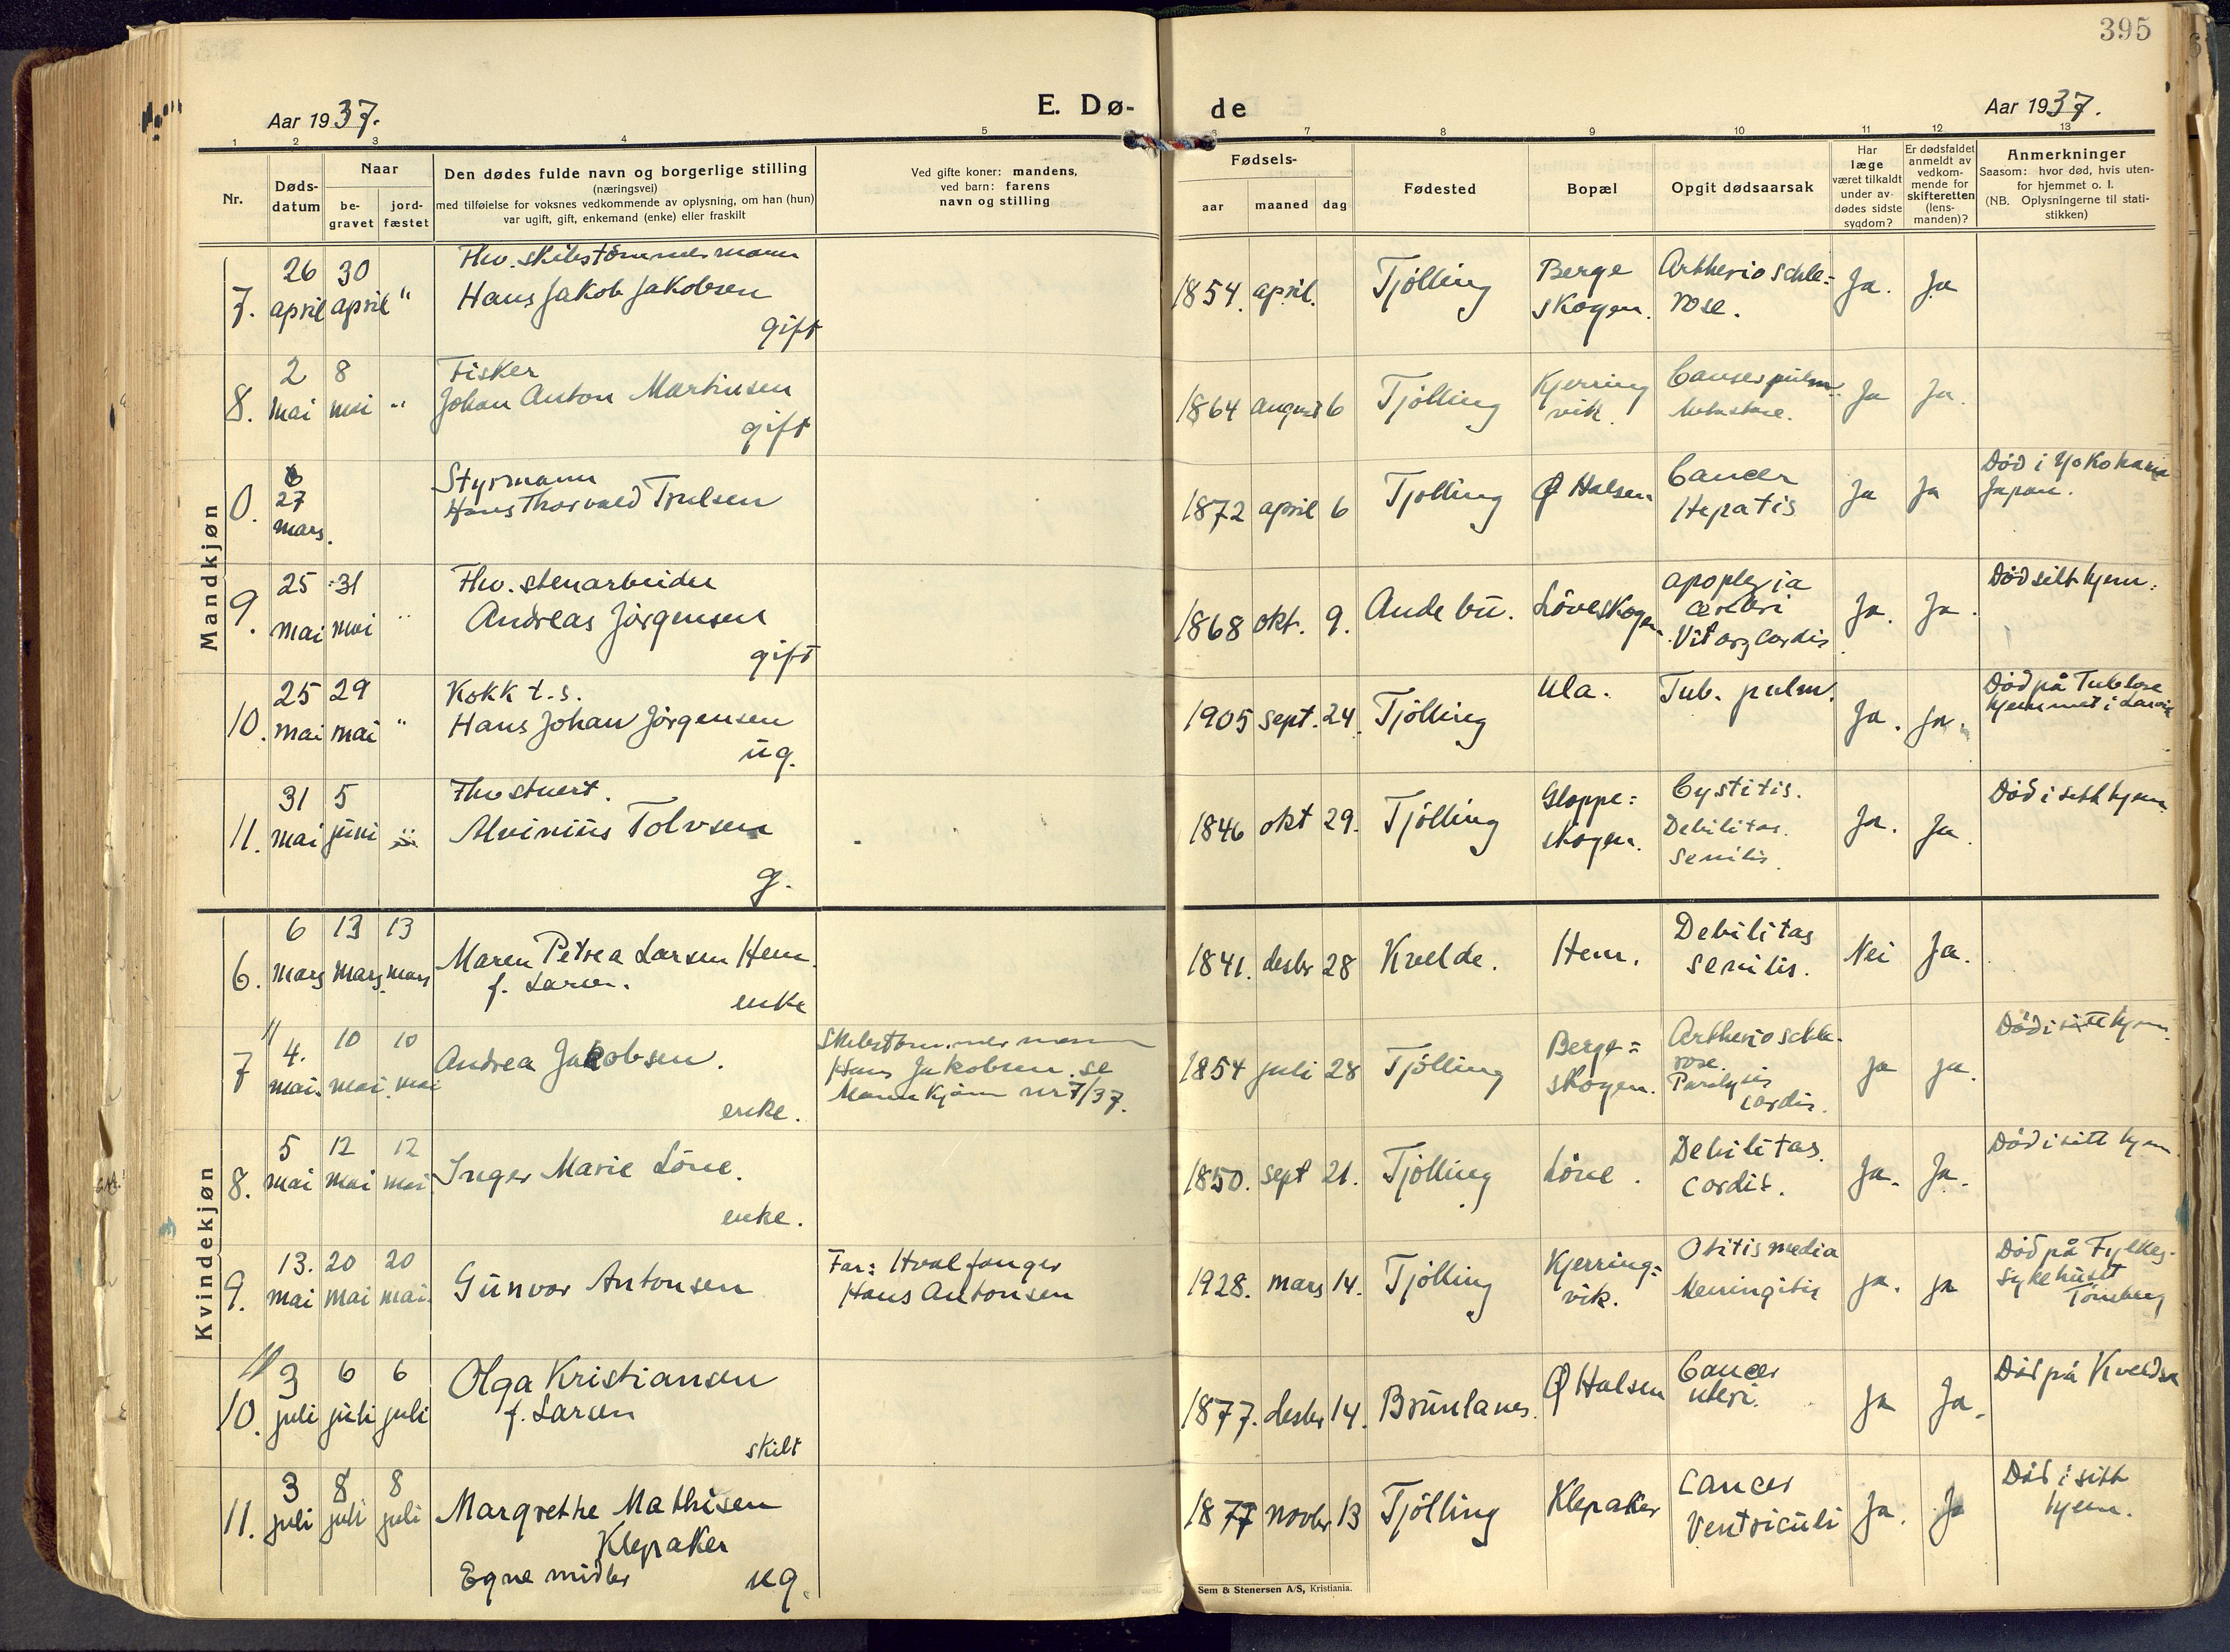 395
Aar 1937.
E. Dø-
de
Aar 1937.
1 2 3 4 5 6 7 8 9 10 11 12 13
Nr.
Døds-
datum
Naar
be-
gravet
jord-
fæstet
Den dødes fulde navn og borgerlige stilling
(næringsvei)
med tilføielse for voksnes vedkommende av oplysning, om han (hun)
var ugift, gift, enkemand (enke) eller fraskilt
Ved gifte koner: mandens,
ved barn: farens
navn og stilling
Fødsels-
aar maaned dag
Fødested
Bopæl
Opgit dødsaarsak
Har
læge
været tilkaldt
under av-
dødes sidste
sygdom?
Er dødsfaldet
anmeldt av
vedkom-
mende for
skifteretten
(lens-
manden)?
Anmerkninger
Saasom: hvor død, hvis uten-
for hjemmet o. l.
(NB. Oplysningerne til stati-
stikken)
Mandkjøn
7.
26
april
30
april
"
Fhv. skibstömmermann
Hans Jakob Jakobsen
gift
1854. april.
Tjölling
Berge
skogen.
Artherioschle=
rose.
Ja.
Ja
8.
2
mai
8
mai
"
Fisker
Johan Anton Martinsen
gift
1864 august 6
Tjölling
Kjerring
vik.
Cancer pulm.
Ja
Ja.
0.
27
mars.
Styrmann
Hans Thorvald Trulsen
1872 april 6
Tjølling
Ø Halsen
Cancer
Hepatis
Ja
Ja
Död i Yokohama
Japan.
9.
25
mai
31
mai
"
Fhv. stenarbeider
Andreas Jörgensen
gift
1868 okt. 9.
Andebu.
Löveskogen.
apoplexia
cerebri
Vit org cordis
Ja.
Ja.
Död sitt hjem.
10.
25
mai
29
mai
"
Kokk t.s.
Hans Johan Jörgensen
ug.
1905 sept. 24.
Tjölling
Ula.
Tub. pulm.
Ja.
Ja.
Död på Tub
hjemmet i Larvik
11.
31
mai
5
juni
"
Fhv stuert.
Alvinius Tolvsen
g.
1846 okt 29.
Tjölling
Gloppe=
skogen.
Cystitis.
Debilitas.
senilis.
Ja.
Ja.
Död i sitt hjem
Kvindekjøn
6.
6
mars
13
mars
13
mars
Maren Petrea Larsen Hem.
f. Larsen.
enke
1841. desbr 28
Kvelde.
Hem.
Debilitas
senilis.
Nei
Ja.
7
4.
mai.
10
mai
10
mai
Andrea Jakobsen.
enke.
Skibstömmermann
Hans Jakobsen. se
Mannkjønn nr 7/37.
1854 juli 28
Tjölling
Berge=
skogen.
Artherioschle-
rose.
Paralysis
cordis.
Ja
Ja.
Död i sitt hjem.
8.
5
mai
12
mai
12
mai
Inger Marie Löve.
enke.
1850. sept 21.
Tjölling
Löve.
Debilitas.
cordis.
Ja.
Ja.
Död i sitt hjem
9.
13.
mai
20
mai
20
mai.
Gunvor Antonsen
Far: Hvalfanger
Hans Antonsen
1928. mars 14.
Tjölling
Kjerring=
vik.
Otitis media
Meningitis
Ja.
Ja
Död på Fylkes-
sykehuset
Tönsberg
10.
3
juli
6
juli
6
juli
Olga Kristiansen
f. Larsen
skilt
1877. desbr 14.
Brunlanes.
Ø Halsen
Cancer
uteri.
Ja
Ja.
Död på Kvelde
11.
3
juli
8
juli
8
juli
Margrethe Mathisen
Klepaker
Egne midler
ug.
1877 novbr 13
Tjölling
Klepaker
Cancer
Ventriculi
Ja.
Ja
Död i sitt
hjem.
Sem & Stenersen A/S, Kristiania.